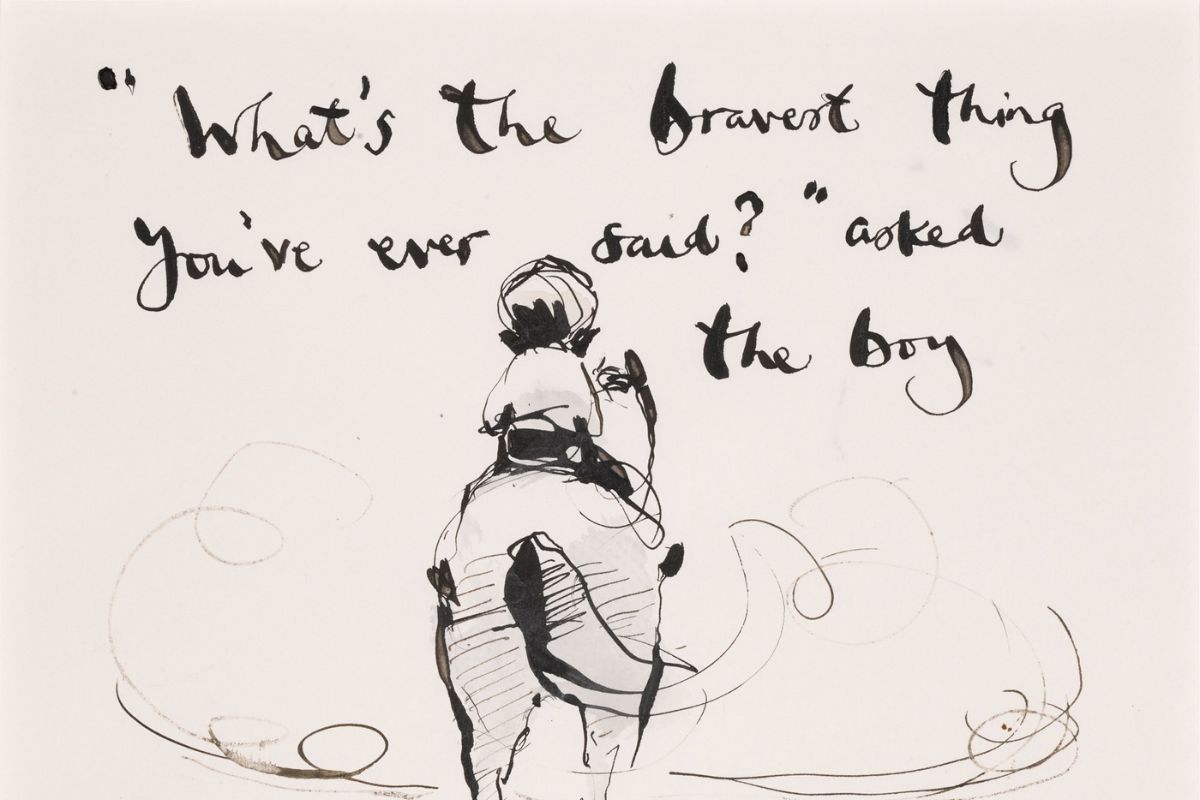 "What's the bravest thing
You've ever said?" asked
the boy